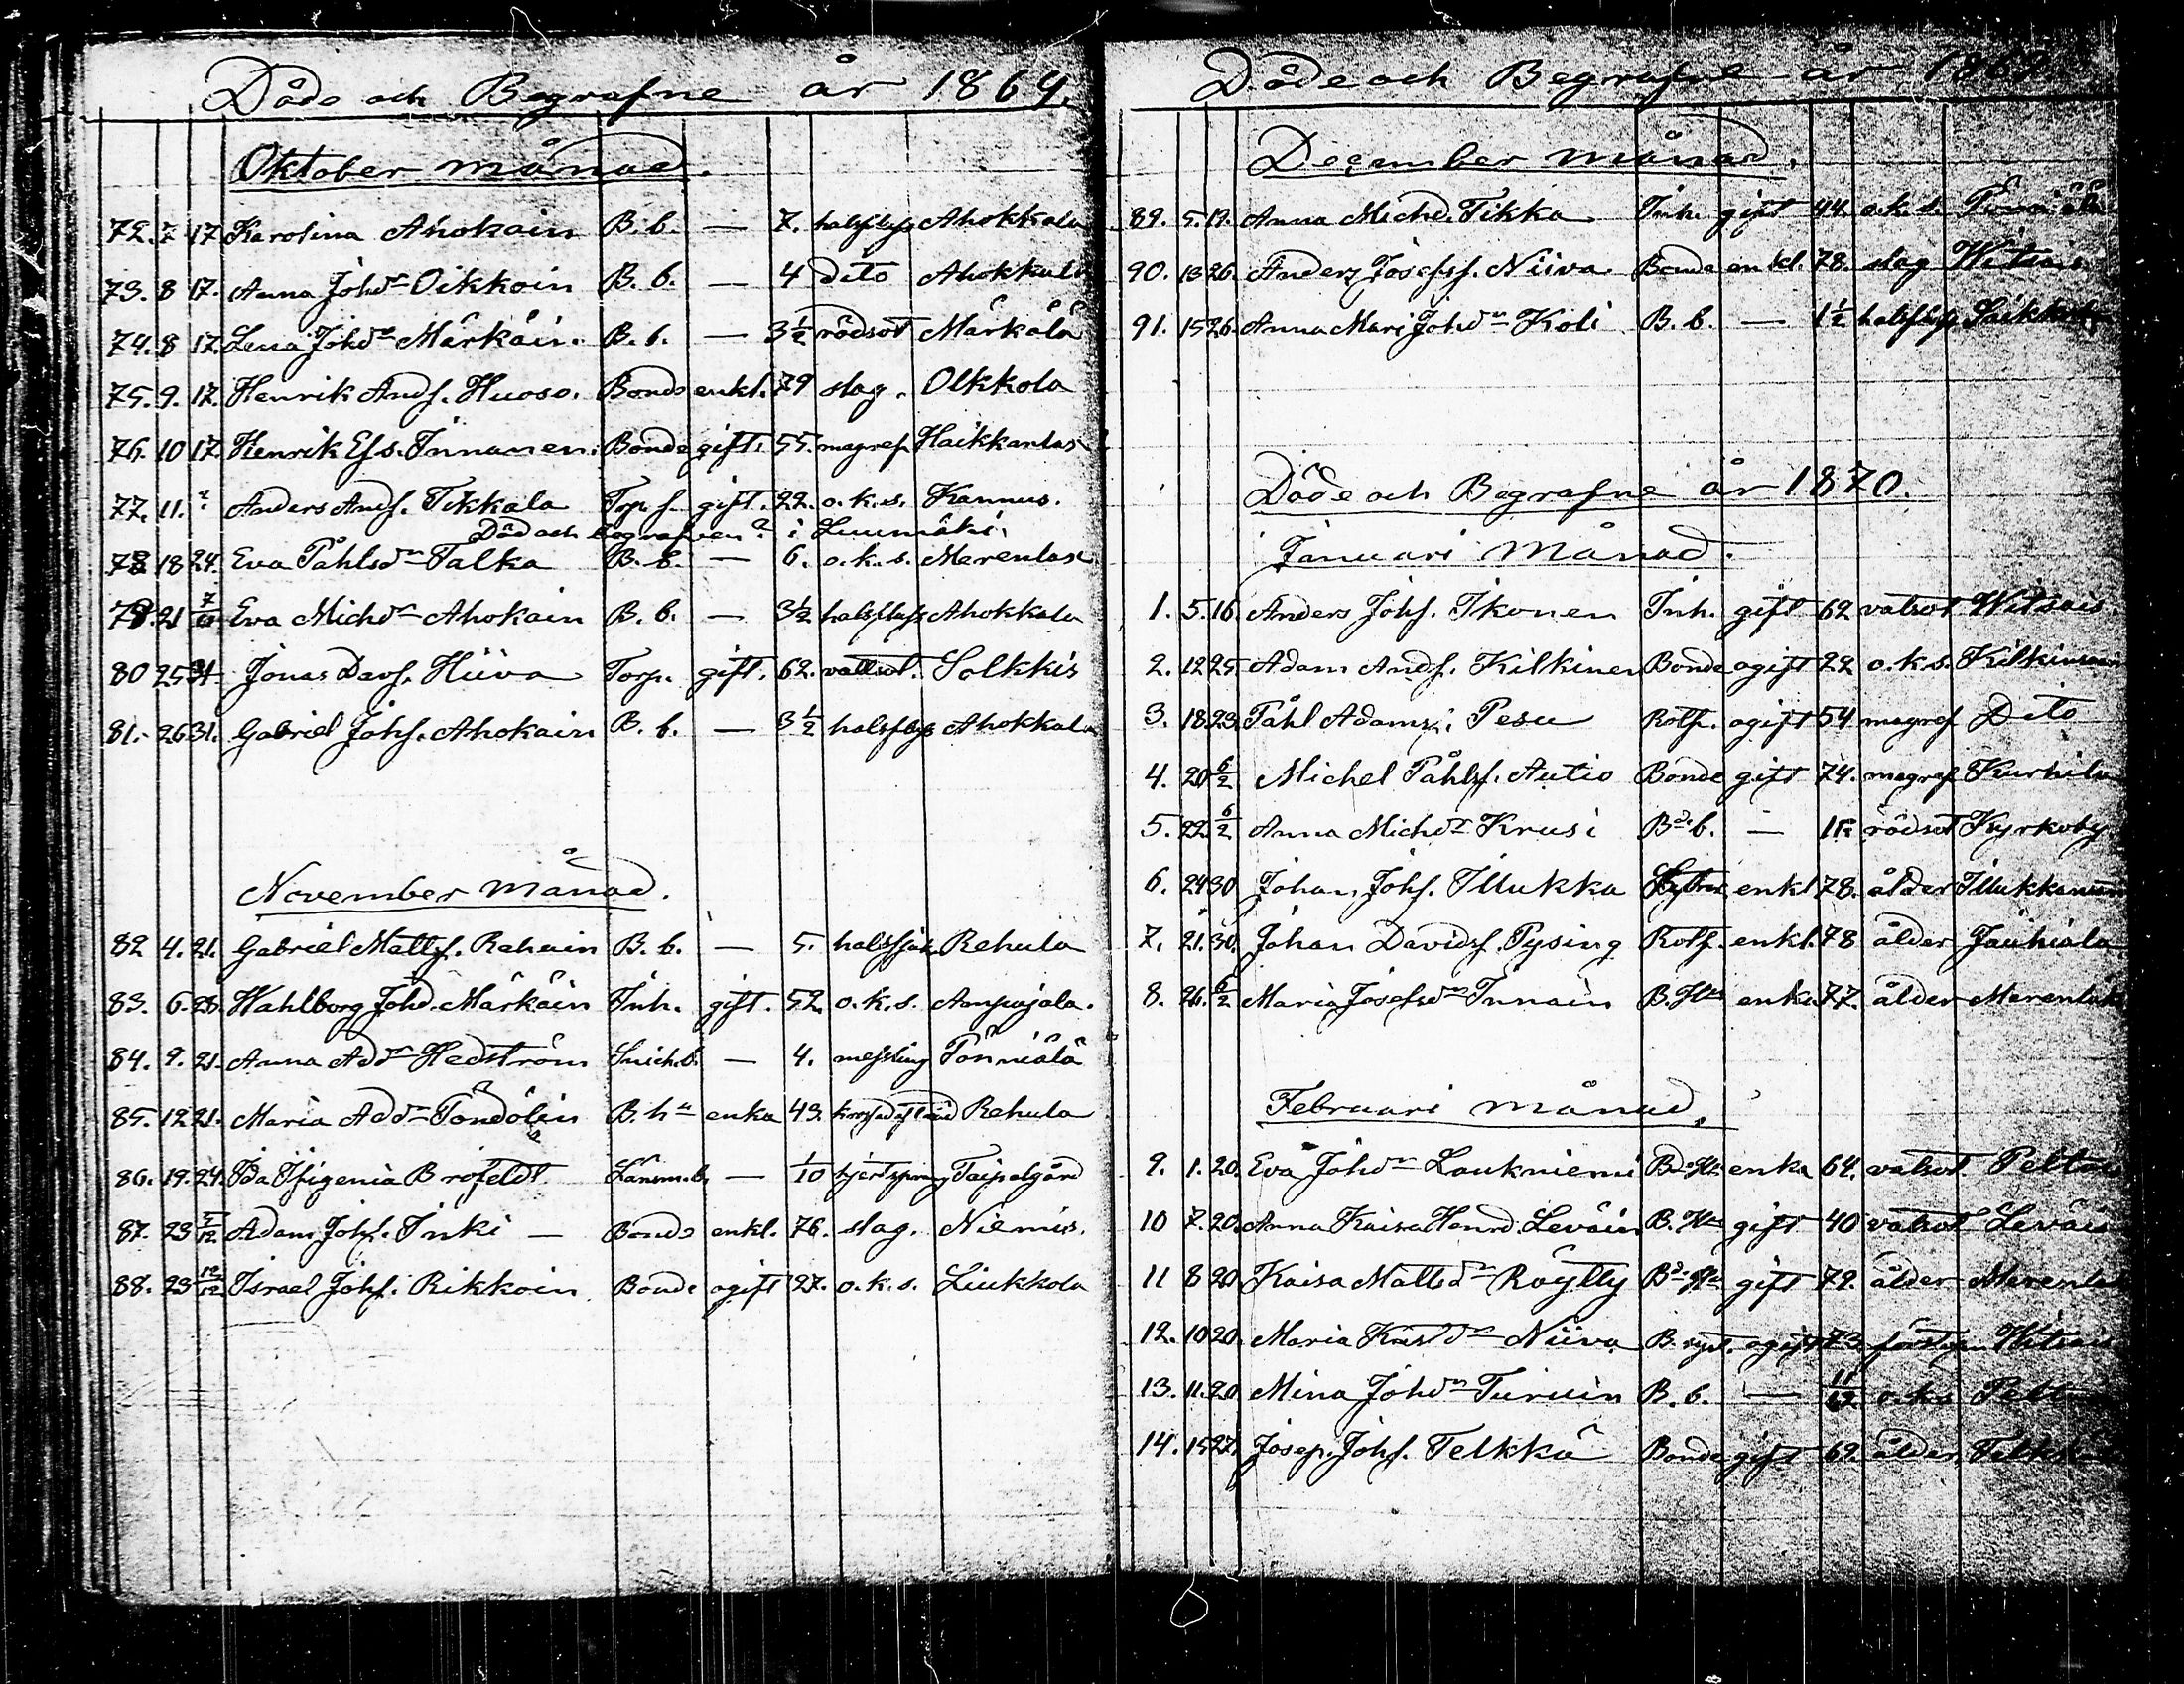 Döde och Begrafne år 1869.
Oktober månad.
72. 7 17 Karolina Ahokain B. b. — 7. halsfluss Ahokkala
73. 8 17. Anna Johdr Oikkoin B. b. — 4 dito Ahokkala
74. 8 17. Lena Johdr Märkäin. B. b. — 3½ rödsot Märkälä
75. 9. 17. Henrik Andf. Huoso. Bonde enkl. 79 slag. Olkkola
76. 10 17. Henrik Efs. Innanen. Bonde gift. 55. magref Haikkanlax
77. 11. ? Anders Andf. Tikkala Torp. f. gift. 22. o.k.s. Kannus.
Död och begrafven? i Luumäki.
78 18 24. Eva Påhlsdr Talka B. b. — 6. o.k.s. Merenlax
79. 21 7/10 Eva Michdr Ahokain B. b. — 3½ halsfluss Ahokkala
80 25 31 Jonas Davf. Hiiva Torp. gift. 62. vattsot. Solkkis
81. 26 31. Gabriel Johf. Ahokain B. b. — 3½ halsfluss Ahokkala
November månad.
82 4. 21. Gabriel Mattf. Rahain B. b. — 5. halssjuk. Rehula
83. 6. 28. Wahlborg Johd. Märkäin Inh. gift. 52. o.k.s. Ampujala.
84. 9. 21. Anna Addr Hedström Snick.b. — 4. messling Pönniälä
85. 12 21. Maria Addr Töndölin B. hu enka 43. Rehula
86. 19. 24. Ida Ifigenia Brofeldt. Länsm.b. — 1/10 hjertsprång Taipalgård
87. 23 5/12 Adam Johf. Inki — Bonde enkl. 76. slag. Niemis.
88. 23 12/12 Israel Johf. Rikkoin Bonde ogift 27. o.k.s. Liukkola
Döde och Begrafne år 1869.
December månad.
89. 5. 19. Anna Michd. Tikka Inh. gift 44. o.k.s. Pönniälä
90. 13 26. Anders Josefsf. Niiva Bonde enkl. 78. slag Witsais
91. 15 26. Anna Mari Johdr Koli B. b. — 1½ halsfluss Säikkola
Döde och Begrafne år 1870.
Januari Månad.
1. 5. 16. Anders Johf. Ikonen Inh. gift 62 vatsot Witsais.
2. 12 25. Adam Andf. Kilkinen Bonde ogift 22 o.k.s. Kilkinsaari
3. 18 23. Påhl Adamsf. Pesu Rotf. ogift 54 magref Dito
4. 20 6/2 Michel Påhlsf. Autio Bonde gift 74. magref Kurhila
5. 22. 6/2 Anna Michdr Krusi Bde b. — rödsot Kyrkoby
6. 24 30 Johan Johf. Illukka enkl 78. ålder Illukkanum
7. 21. 30. Johan Davidsf. Pysing Rotf. enkl. 78 ålder Jäuhiala
8. 26. 6/2 Maria Josefsdr Innain B. Hu enka 77. ålder Merenlax
Februari månad.
9. 1. 20. Eva Johdr Laukniemi Bde Hu enka 64. vatsot Peltois
10 7. 20. Anna Kaisa Henrd. Leväin B. Hu gift 40 vatsot Leväis
11 8 20 Kaisa Mattsdr Röytty Bde Hu gift 79. ålder Merenlax
12. 10 20. Maria Kristdr Niiva B. syst. ogift 73. Witsais
13. 11. 20. Mina Johdr Turuin B. b. — 11/12. o.k.s
14. 15 27. Josep. Johf. Telkkä Bonde gift 69. ålder